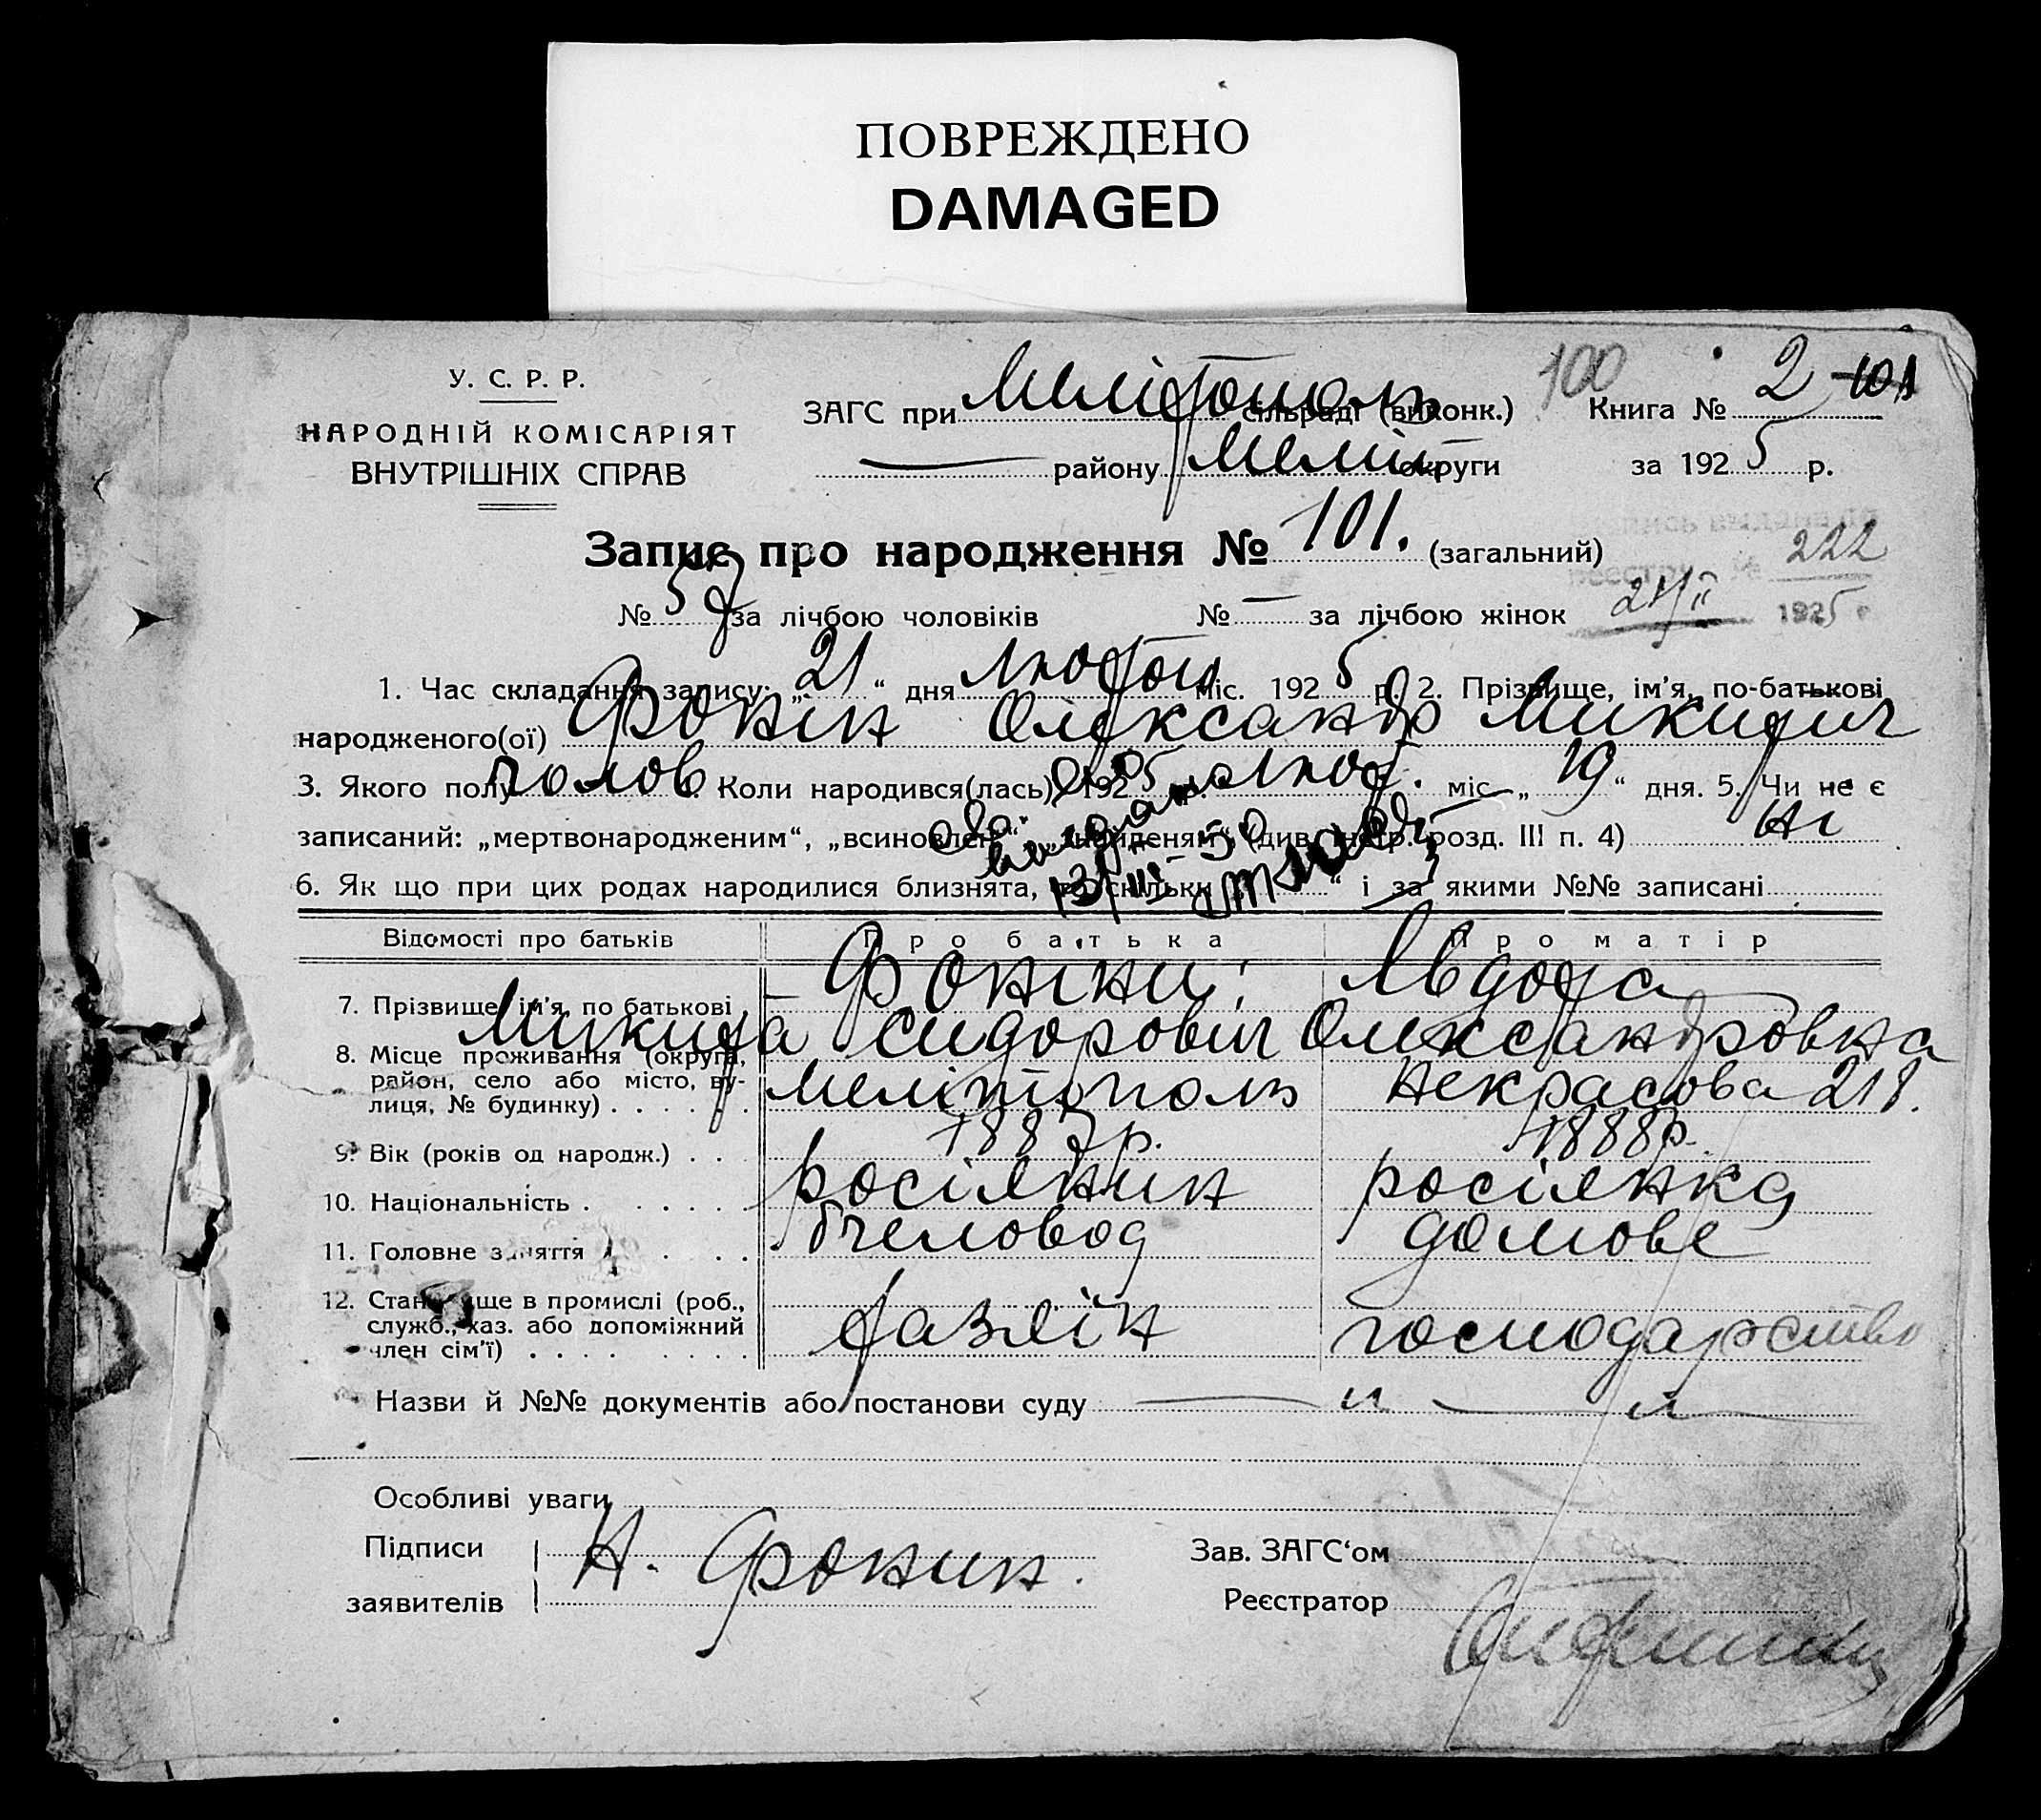 ПОВРЕЖДЕНО
DAMAGED
У. С. Р. Р.
НАРОДНІЙ КОМІСАРІЯТ
ВНУТРІШНІХ СПРАВ
ЗАГС при Мелітополь сільраді (виконк.)
— району Меліт. округи
100
Книга № 2 101
за 1925 р.
Запис про народження № 101. (загальний)
№ 57 за лічбою чоловіків № — за лічбою жінок
реєстру № 222
21/II 1925 г
1. Час складання запису: „21“ дня лютого міс. 1925 р. 2. Прізвище, ім'я, по-батькові
народженого(ої) Фонін Олександр Микитич
3. Якого полу чолов Коли народився(лась) 1925 р. лют. міс. „19“ дня. 5. Чи не є
записаний: „мертвонародженим“, „всиновлен“, „знайденям“ (див. інстр. розд. III п. 4) Ні
6. Як що при цих родах народилися близнята, то скільки „ “ і за якими №№ записані
Відомості про батьків Про батька Про матір
7. Прізвище, ім'я, по батькові Фоніни: Микита Сидорович Явдота Олександровна
8. Місце проживання (округа, район, село або місто, вулиця, № будинку) Мелітополь Некрасова 218.
9. Вік (років од народж.) 1887 р. 1888 р.
10. Національність росіянин росіянка
11. Головне заняття бчеловод домове
12. Становище в промислі (роб., служб., хаз. або допоміжний член сім'ї) хазяїн господарство
Назви й №№ документів або постанови суду — „ — „
Особливі уваги
Підписи заявителів Н. Фонин.
Зав. ЗАГС‘ом
Реєстратор